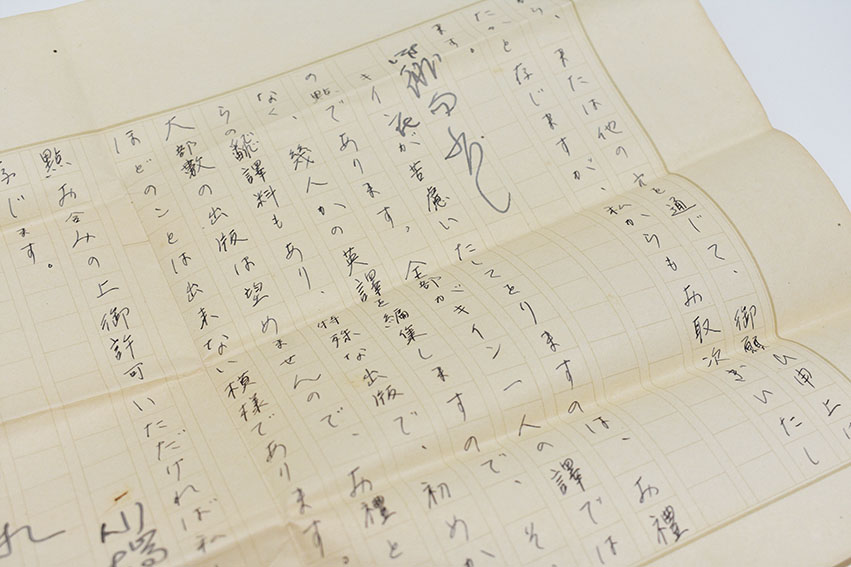 ら、または他の方を通じて、御願ひ申上げ
たいと存じますが、私からもお取次ぎいたし
ます。
キイン氏が苦慮いたしてをりますのは、お禮
の點であります。全部がキイン一人の譯では
なく、幾人かの英譯を編集しますので、そ
らの飜譯料もあり、特殊な出版で、初めか
大部數の出版は望めませんので、お禮と
ほどのことは出来ない模様であります。
點お含みの上御許可いただければ私
存じます。
川端